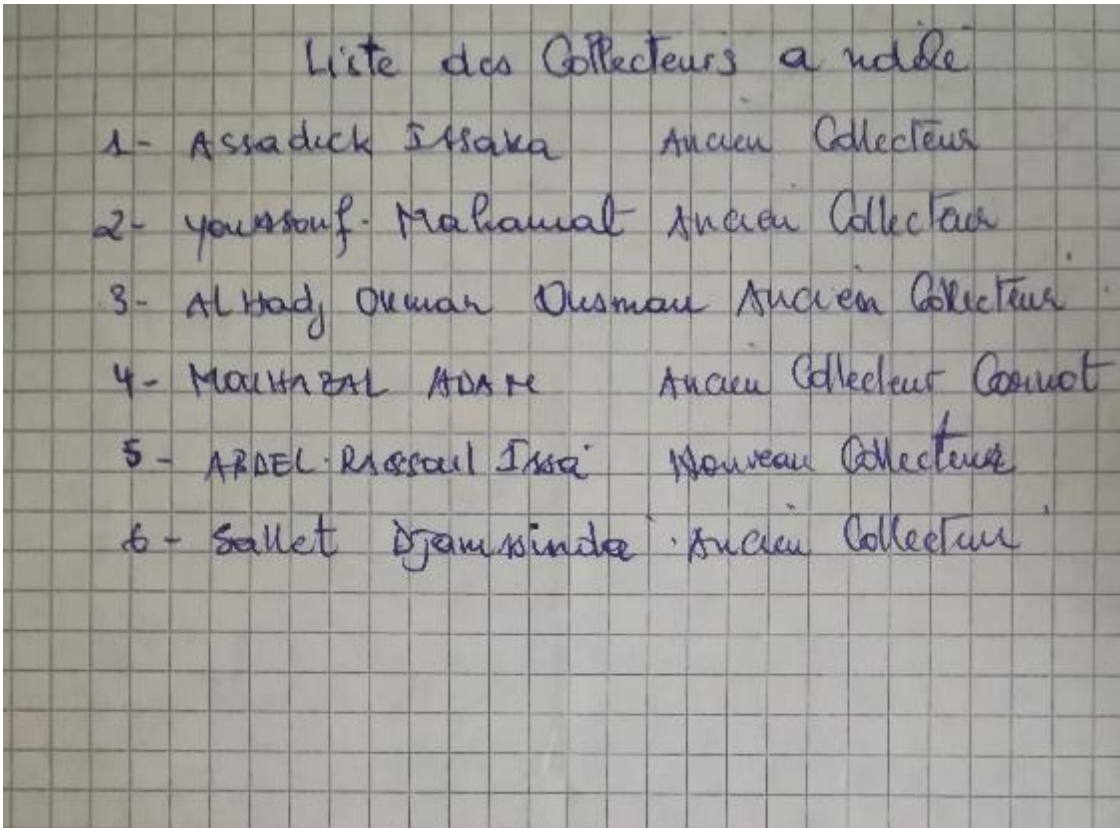 Liste des Collecteurs a ndélé
1- Assadick Issaka Ancien Collecteur
2- youssouf. Mahamat Ancien Collecteur
3- Al Hadj Oumar Ousman Ancien Collecteur
4- ADAM Ancien Collecteur Carnot
5- ABDEL. RASSoul Issa Nouveau Collecteur
6- Sallet Djamssinda Ancien Collecteur